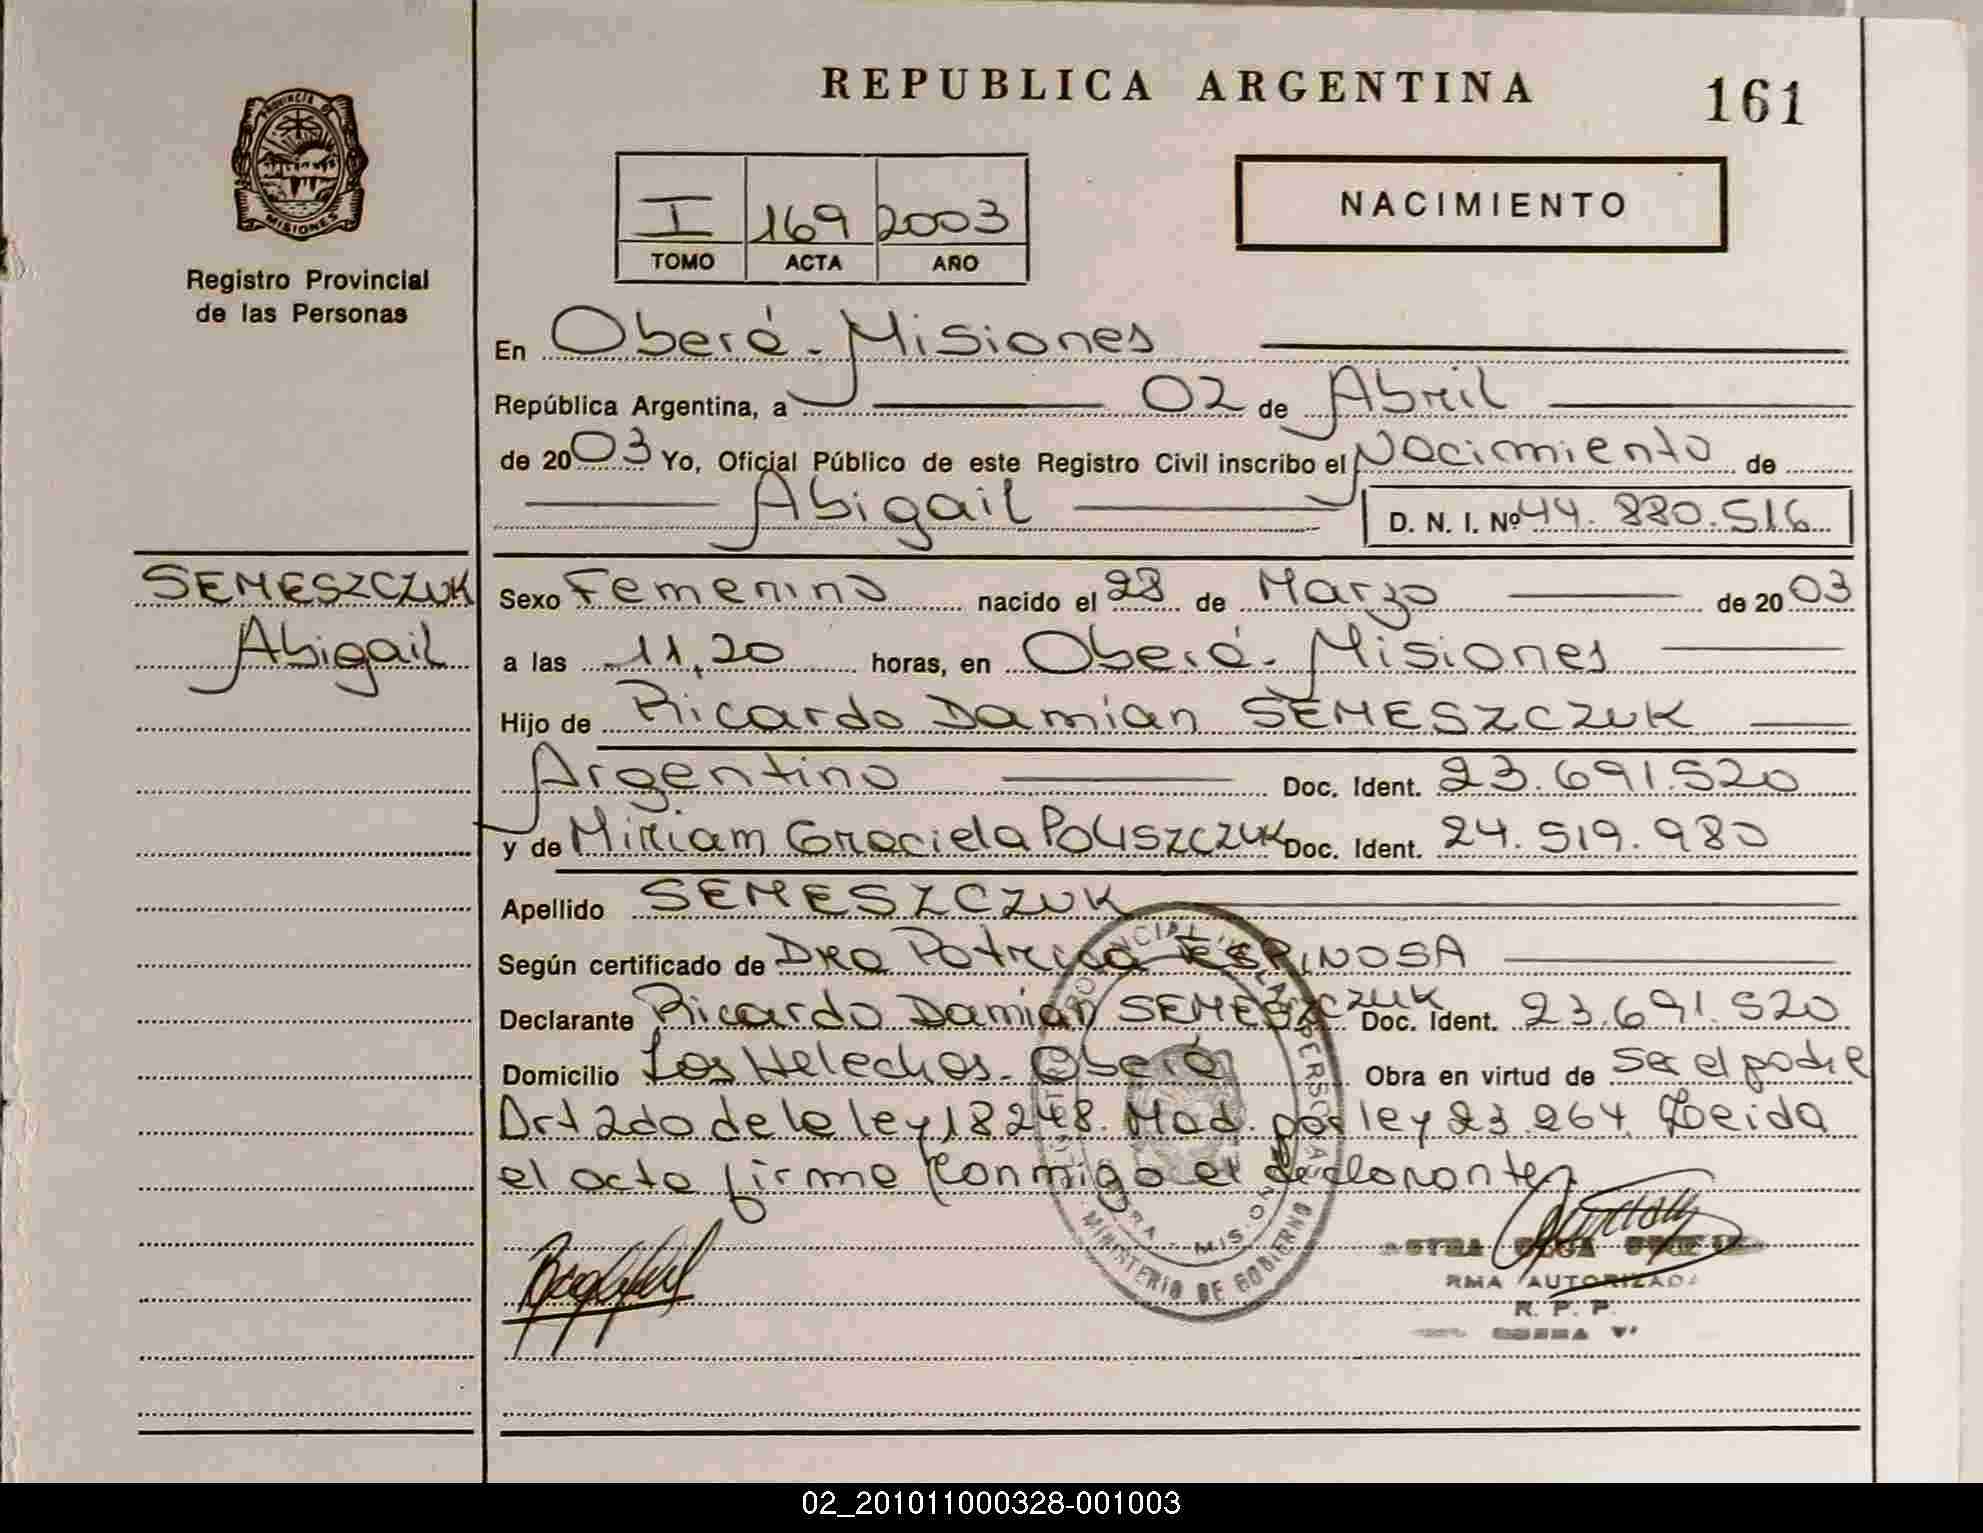 REPUBLICA ARGENTINA
161
PROVINCIA DE MISIONES
Registro Provincial
de las Personas
I 169 2003
TOMO ACTA AÑO
NACIMIENTO
En Oberá - Misiones
República Argentina, a 02 de Abril
de 2003 Yo, Oficial Público de este Registro Civil inscribo el Nacimiento de
Abigail D. N. I. Nº 44.880.516
SEMESZCZUK
Abigail
Sexo Femenino nacido el 28 de Marzo de 2003
a las 11,20 horas, en Oberá - Misiones
Hijo de Ricardo Damián SEMESZCZUK
Argentino Doc. Ident. 23.691.520
y de Miriam Graciela POLISZCZUK Doc. Ident. 24.519.980
Apellido SEMESZCZUK
Según certificado de Dra Patricia ESPINOSA
Declarante Ricardo Damián SEMESZCZUK Doc. Ident. 23.691.520
Domicilio Los Helechos - Oberá Obra en virtud de Ser el padre
Art 2do de la ley 18248. Mod. por ley 23.264. Leida
el acta firma conmigo el declarante
MINISTERIO DE GOBIERNO
AUTORIZADA
R. P. P.
02_201011000328-001003